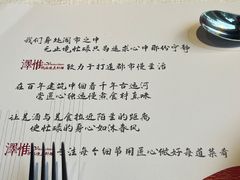 我们身处闹市之中
无止境忙碌只为追求心中那份宁静
澤惟 致力于打造都市慢生活
在百年建筑中细看千年古运河
尝匠心独运慢煮食材真味
让美酒与美食拉近陌生的距离
使忙碌的身心如沐春风
澤惟 专注每个细节用匠心做好每道菜肴